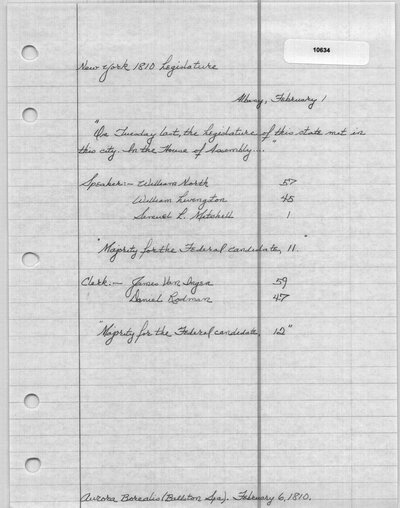 10634
New York 1810 Legislature
Albany, February 1
"On Tuesday last, the Legislature of this state met in
this city. In the House of Assembly..."
Speaker:- William North 57
William Livingston 45
Samuel L. Mitchell 1
"Majority for the Federal candidate, 11."
Clerk:- James Van Ingen 59
Daniel Rodman 47
"Majority for the Federal candidate, 12"
Aurora Borealis (Ballston Spa). February 6, 1810.